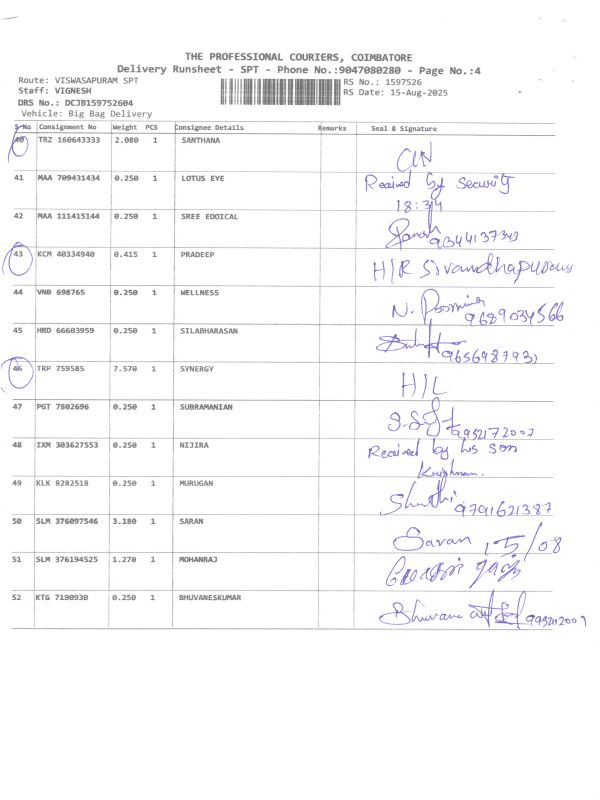 THE PROFESSIONAL COURIERS, COIMBATORE
Delivery Runsheet - SPT - Phone No.:9047080280 - Page No.:4
Route: VISWASAPURAM SPT
RS No.: 1597526
Staff: VIGNESH
RS Date: 15-Aug-2025
DRS No.: DCJB159752604
Vehicle: Big Bag Delivery
S No Consignment No Weight PCS Consignee Details Remarks Seal & Signature
40 TRZ 160643333 2.080 1 SANTHANA
41 MAA 709431434 0.250 1 LOTUS EYE Received by Security
18:34
42 MAA 111415144 0.250 1 SREE EDOICAL 9344137343
43 KCM 40334940 0.415 1 PRADEEP H/R
44 VNB 698765 0.250 1 WELLNESS N. 9689034566
45 HRD 66603959 0.250 1 SILABHARASAN
46 TRP 759585 7.570 1 SYNERGY
47 PGT 7802696 0.250 1 SUBRAMANIAN
48 IXM 303627553 0.250 1 NIJIRA Received by his son
Krishnan.
49 KLK 8282518 0.250 1 MURUGAN 9791621387
50 SLM 376097546 3.180 1 SARAN Saran 15/08
51 SLM 376194525 1.270 1 MOHANRAJ
52 KTG 7190930 0.250 1 BHUVANESKUMAR